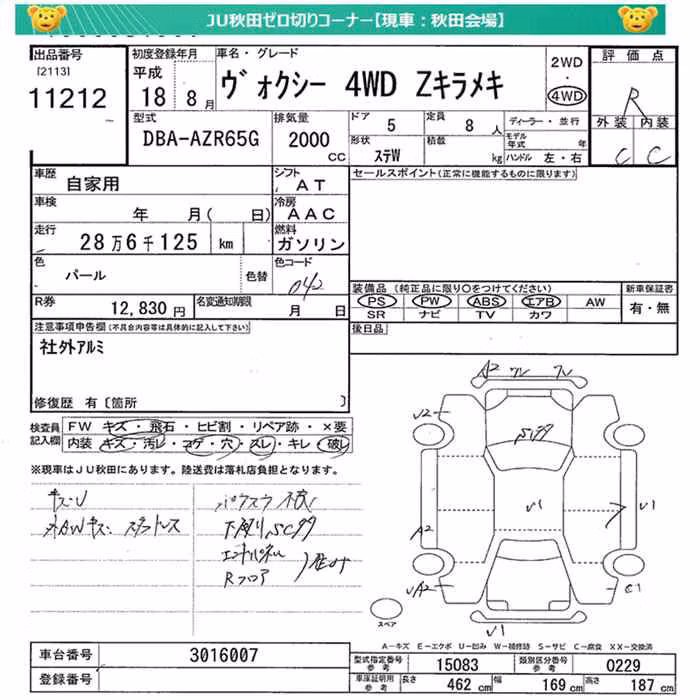 JU秋田ゼロ切りコーナー【現車：秋田会場】
出品番号
[2113]
11212
初度登録年月
平成
18 8月
車名・グレード
ヴォクシー 4WD Zキラメキ
2WD
・
4WD
評価点
R
外装 内装
C C
型式
DBA-AZR65G
排気量
2000
CC
ドア
5
定員
8 人
形状
ステW
積載
kg
ディーラー・並行
モデル年式 年
ハンドル 左・右
車歴
自家用
シフト
AT
車検
年 月( 日)
冷房
AAC
走行
28万6千125 km
燃料
ガソリン
色
パール
色替
色コード
042
R券
12,830円
名変通知期限
月 日
セールスポイント(正常に機能するものに限ります)
装備品 (純正品に限り○をつけてください)
PS PW ABS エアB AW
SR ナビ TV カワ
新車保証書
有・無
後日品
注意事項申告欄(不具合内容等は具体的に記入して下さい)
社外アルミ
修復歴 有〔箇所 〕
検査員
記入欄
FW キズ・飛石・ヒビ割・リペア跡・×要
内装 キズ・汚レ・コゲ・穴・スレ・キレ・破レ
※現車はJU秋田にあります。陸送費は落札店負担となります。
キズ・U
外AWキズ スタットレス
パワスラ不良
下廻りSC99
エンドパネル
Rフロア
A2
U2
SC99
U1
U1
A2
UA2
C1
U1
スペア
A－キズ E－エクボ U－凹み W－補修跡 S－サビ C－腐食 XX－交換済
車台番号
3016007
登録番号
型式指定番号
参考
15083
類別区分番号
参考
0229
車庫証明用
参考
長さ 462 cm 幅 169 cm 高さ 187 cm